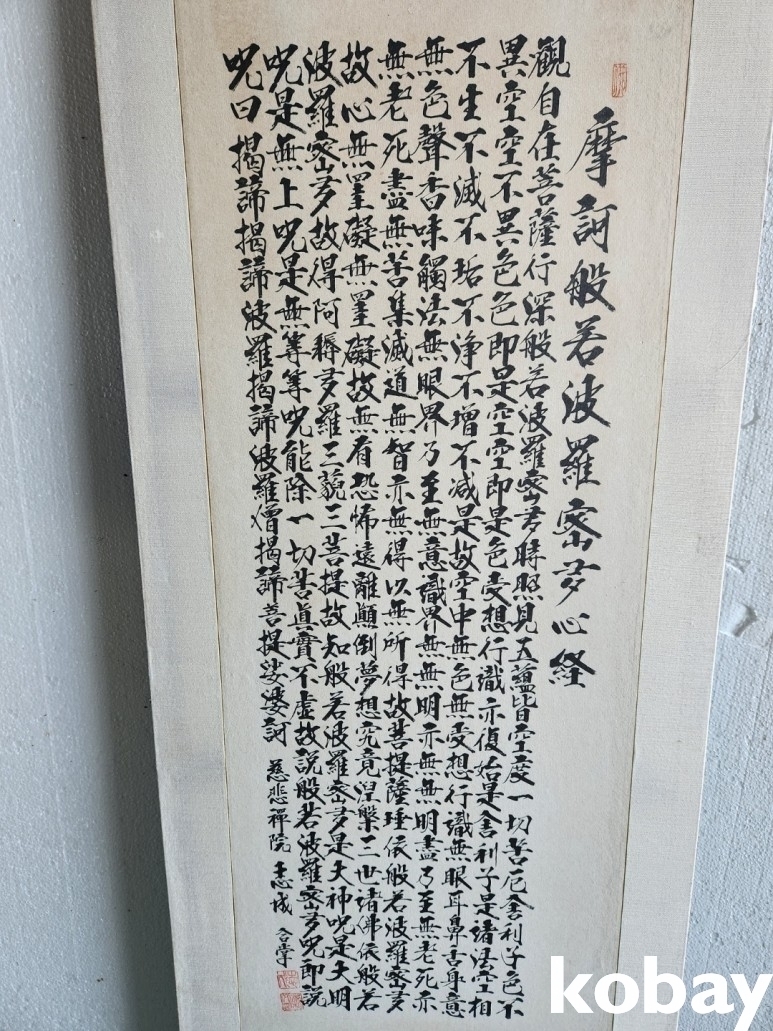 摩訶般若波羅蜜多心経
觀自在菩薩行深般若波羅蜜多時照見五蘊皆空度一切苦厄舍利子色不
異空空不異色色即是空空即是色受想行識亦復如是舍利子是諸法空相
不生不滅不垢不淨不增不減是故空中無色無受想行識無眼耳鼻舌身意
無色聲香味觸法無眼界乃至無意識界無無明亦無無明盡乃至無老死亦
無老死盡無苦集滅道無智亦無得以無所得故菩提薩埵依般若波羅蜜多
故心無罣礙無罣礙故無有恐怖遠離顛倒夢想究竟涅槃三世諸佛依般若
波羅蜜多故得阿耨多羅三藐三菩提故知般若波羅蜜多是大神呪是大明
呪是無上呪是無等等呪能除一切苦眞實不虛故説般若波羅蜜多呪即説
呪曰揭諦揭諦波羅揭諦波羅僧揭諦菩提娑婆訶 慈悲禪院 志成 合掌
kobay